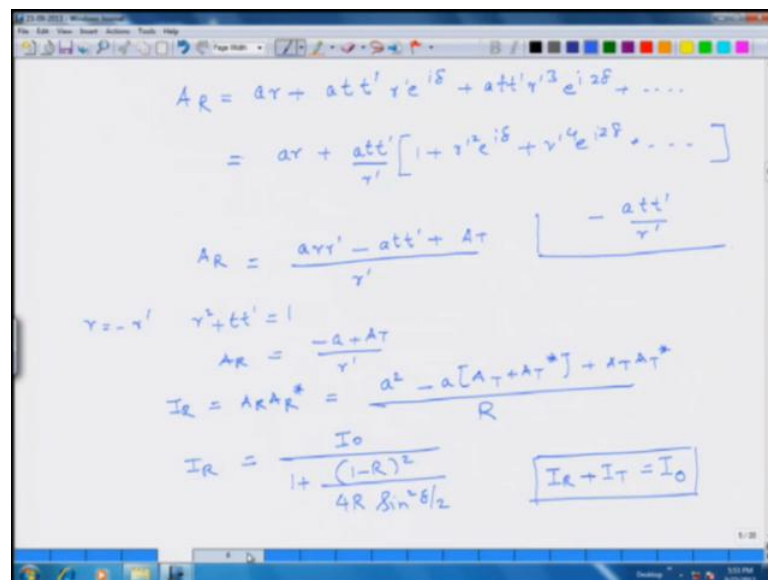 23-09-2013 - Windows Journal
File Edit View Insert Actions Tools Help
Page Width
A_R = ar + att' r' e^{iδ} + att' r'^3 e^{i2δ} + ....
= ar + att'/r' [1 + r'^2 e^{iδ} + r'^4 e^{i2δ} + .... ]
- att'/r'
A_R = (arr' - att' + A_T)/r'
r = -r' r^2 + tt' = 1
A_R = (-a + A_T)/r'
I_R = A_R A_R^* = (a^2 - a[A_T + A_T^*] + A_T A_T^*)/R
I_R = I_0/(1 + (1-R)^2/(4R Sin^2 δ/2))
I_R + I_T = I_0
6
Desktop
5:53 PM